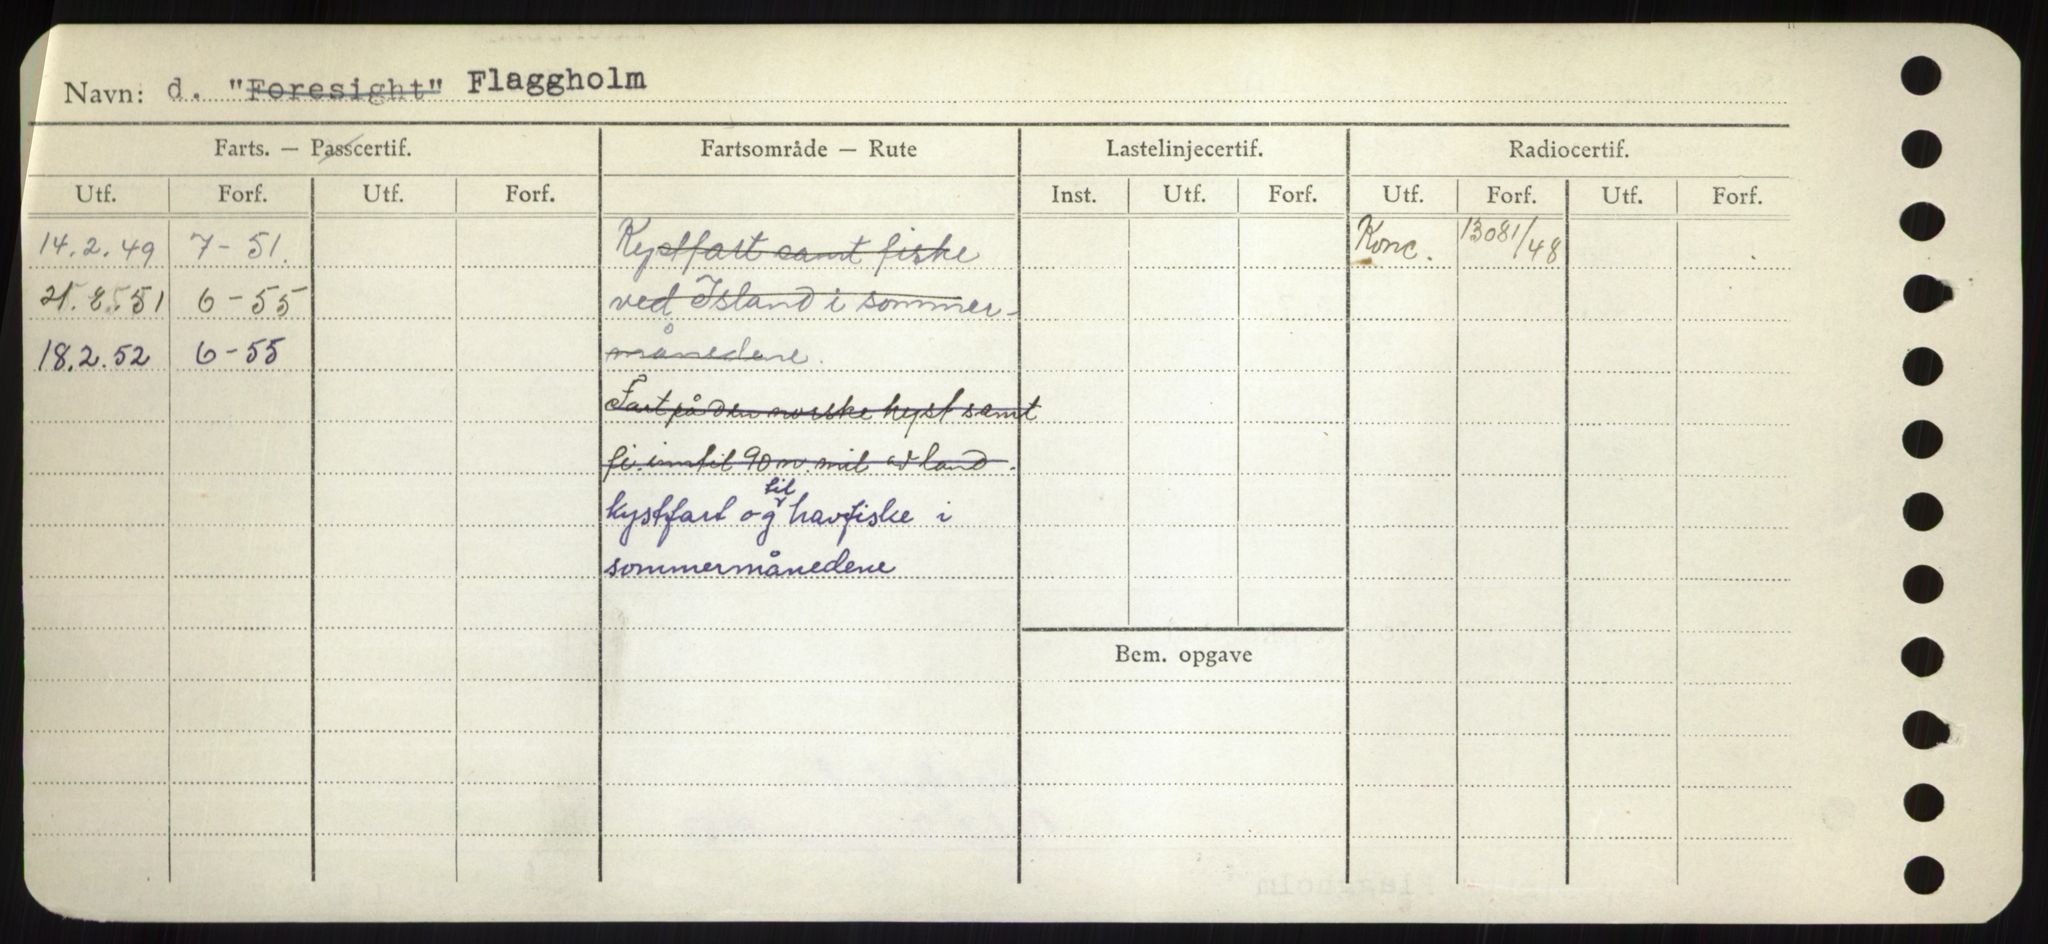 Navn: d. "Foresight" Flaggholm
Farts. — Passcertif. Fartsområde — Rute Lastelinjecertif. Radiocertif.
Utf. Forf. Utf. Forf. Inst. Utf. Forf. Utf. Forf. Utf. Forf.
14.2.49 7-51. Kystfart samt fiske Konc. 13081/48
21.8.51 6-55 ved Island i sommer-
18.2.52 6-55 månedene.
Fart på den norske kyst samt
fi. inntil 90 n. mil av land.
til
kystfart og havfiske i
sommermånedene
Bem. opgave